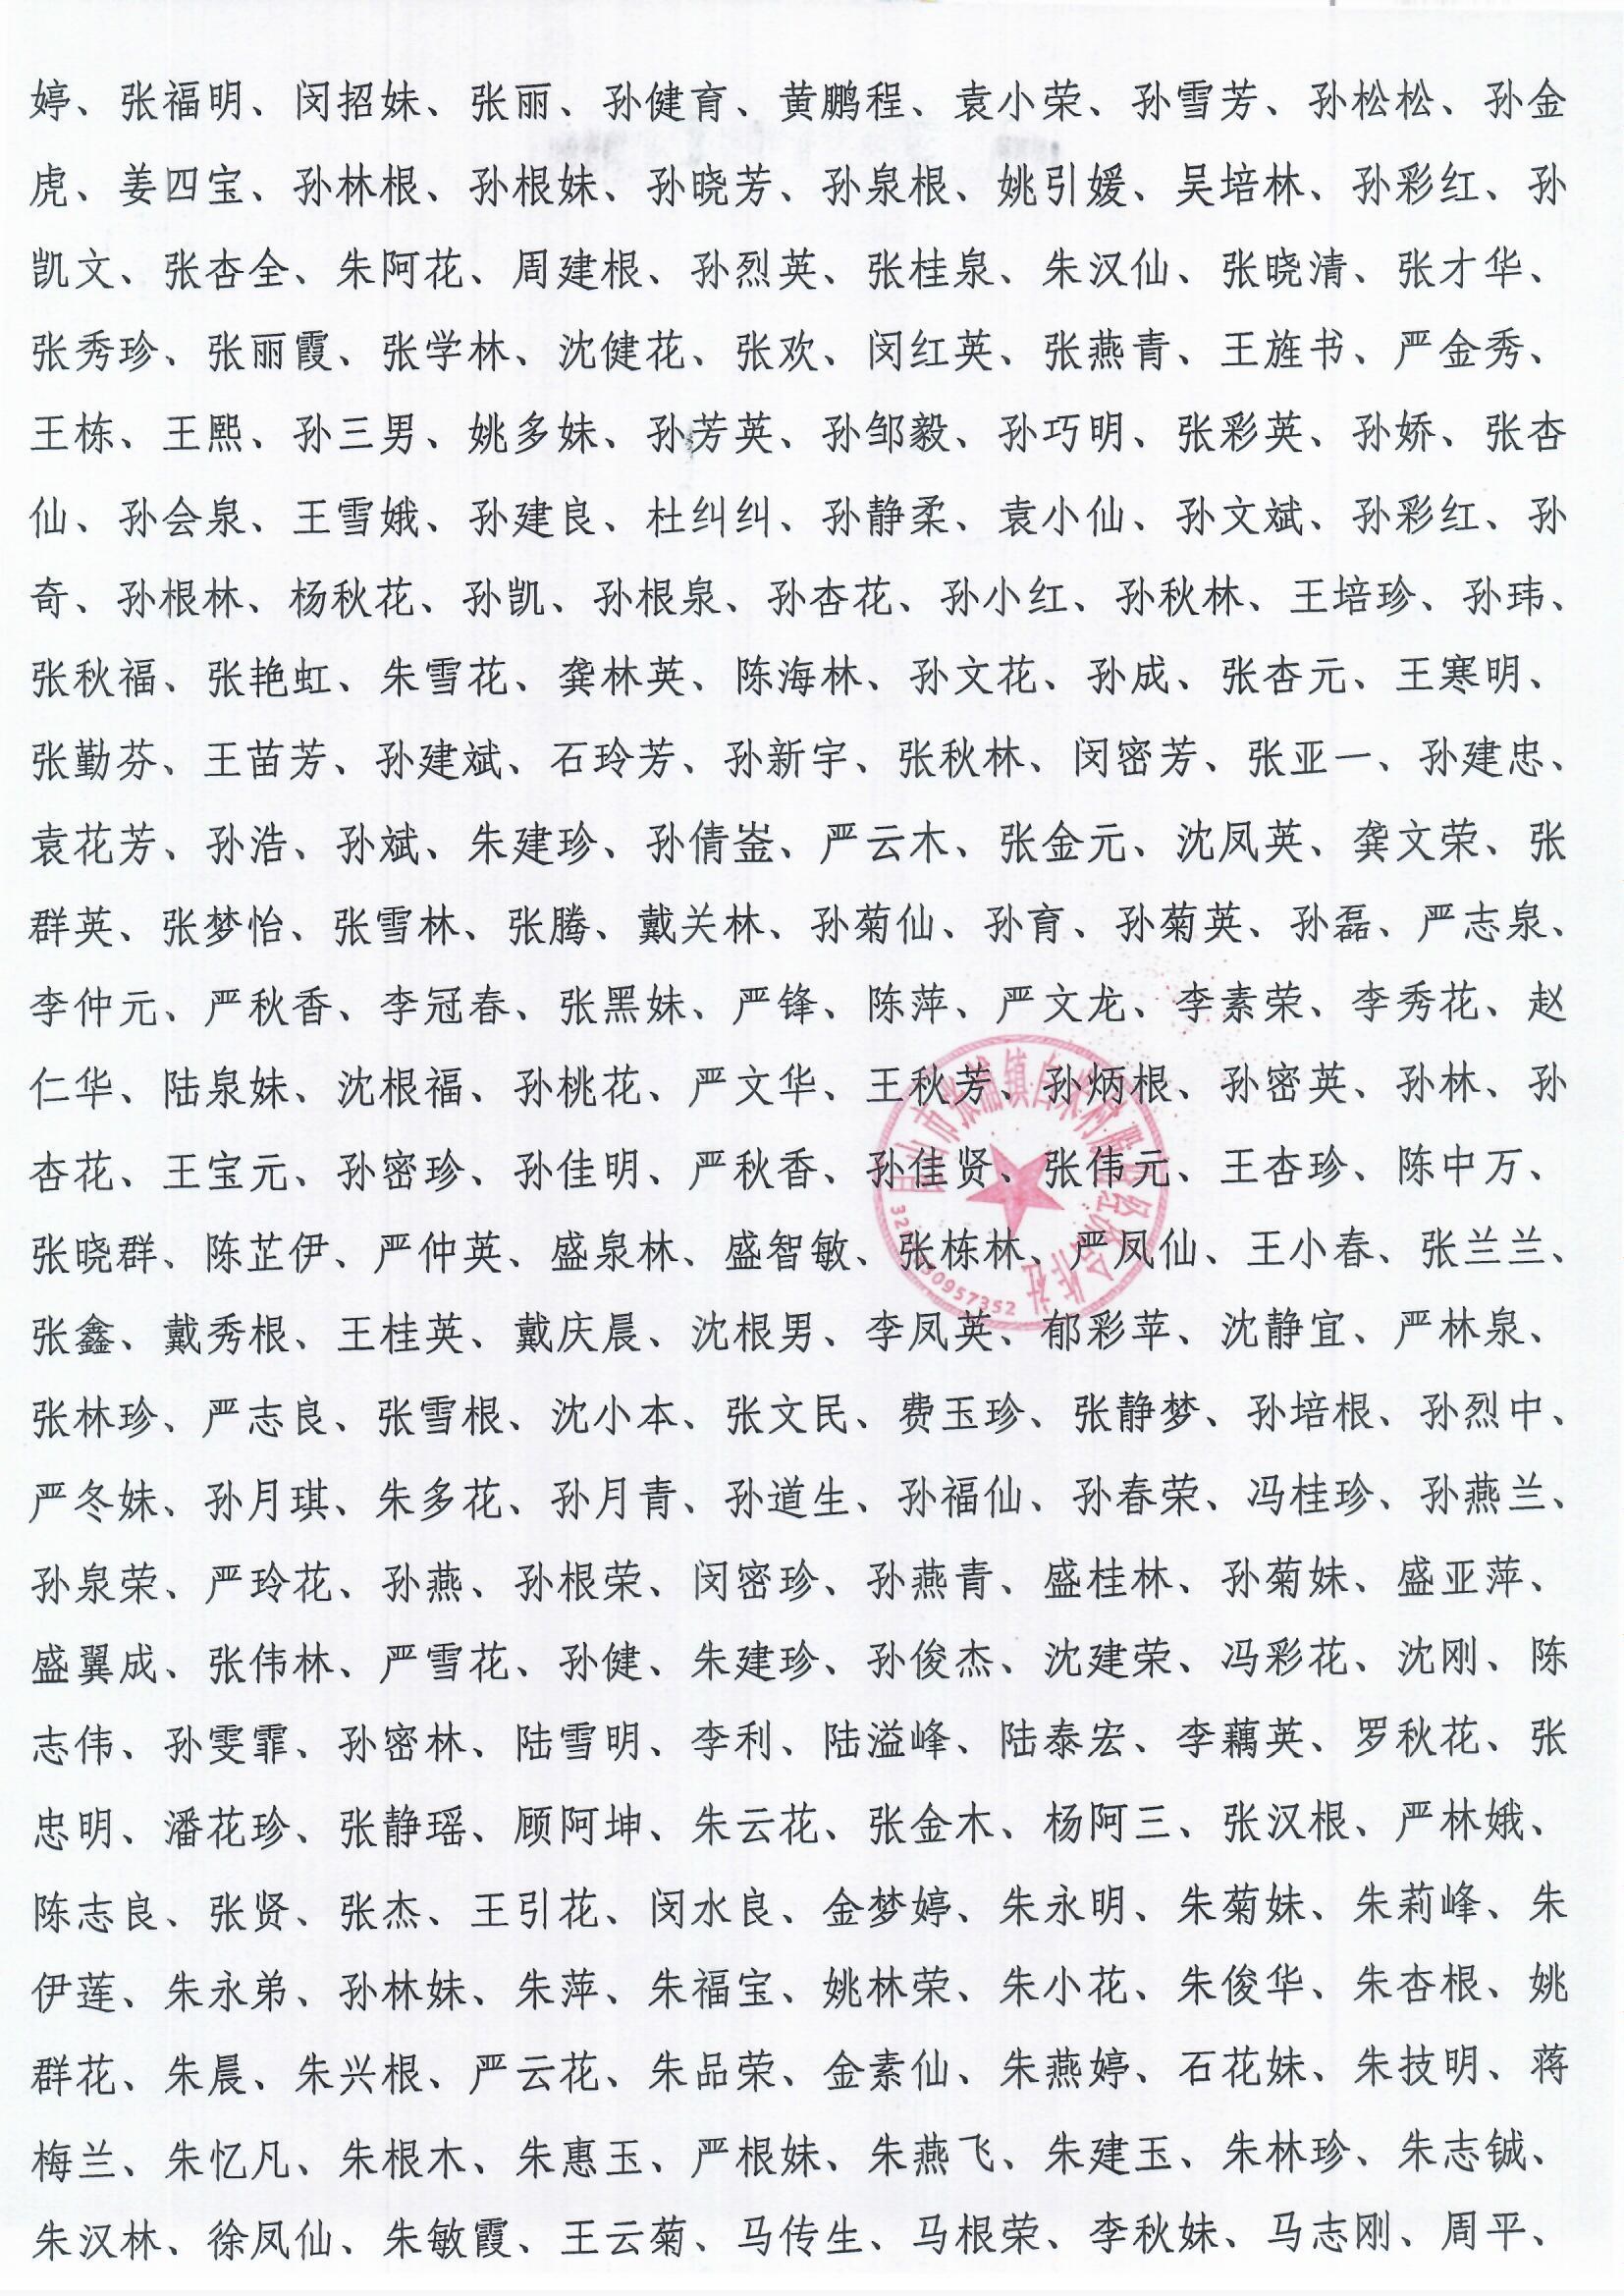 婷、张福明、闵招妹、张丽、孙健育、黄鹏程、袁小荣、孙雪芳、孙松松、孙金
虎、姜四宝、孙林根、孙根妹、孙晓芳、孙泉根、姚引媛、吴培林、孙彩红、孙
凯文、张杏全、朱阿花、周建根、孙烈英、张桂泉、朱汉仙、张晓清、张才华、
张秀珍、张丽霞、张学林、沈健花、张欢、闵红英、张燕青、王旌书、严金秀、
王栋、王熙、孙三男、姚多妹、孙芳英、孙邹毅、孙巧明、张彩英、孙娇、张杏
仙、孙会泉、王雪娥、孙建良、杜纠纠、孙静柔、袁小仙、孙文斌、孙彩红、孙
奇、孙根林、杨秋花、孙凯、孙根泉、孙杏花、孙小红、孙秋林、王培珍、孙玮、
张秋福、张艳虹、朱雪花、龚林英、陈海林、孙文花、孙成、张杏元、王寒明、
张勤芬、王苗芳、孙建斌、石玲芳、孙新宇、张秋林、闵密芳、张亚一、孙建忠、
袁花芳、孙浩、孙斌、朱建珍、孙倩崟、严云木、张金元、沈凤英、龚文荣、张
群英、张梦怡、张雪林、张腾、戴关林、孙菊仙、孙育、孙菊英、孙磊、严志泉、
李仲元、严秋香、李冠春、张黑妹、严锋、陈萍、严文龙、李素荣、李秀花、赵
仁华、陆泉妹、沈根福、孙桃花、严文华、王秋芳、孙炳根、孙密英、孙林、孙
杏花、王宝元、孙密珍、孙佳明、严秋香、孙佳贤、张伟元、王杏珍、陈中万、
张晓群、陈芷伊、严仲英、盛泉林、盛智敏、张栋林、严凤仙、王小春、张兰兰、
张鑫、戴秀根、王桂英、戴庆晨、沈根男、李凤英、郁彩苹、沈静宜、严林泉、
张林珍、严志良、张雪根、沈小本、张文民、费玉珍、张静梦、孙培根、孙烈中、
严冬妹、孙月琪、朱多花、孙月青、孙道生、孙福仙、孙春荣、冯桂珍、孙燕兰、
孙泉荣、严玲花、孙燕、孙根荣、闵密珍、孙燕青、盛桂林、孙菊妹、盛亚萍、
盛翼成、张伟林、严雪花、孙健、朱建珍、孙俊杰、沈建荣、冯彩花、沈刚、陈
志伟、孙雯霏、孙密林、陆雪明、李利、陆溢峰、陆泰宏、李藕英、罗秋花、张
忠明、潘花珍、张静瑶、顾阿坤、朱云花、张金木、杨阿三、张汉根、严林娥、
陈志良、张贤、张杰、王引花、闵水良、金梦婷、朱永明、朱菊妹、朱莉峰、朱
伊莲、朱永弟、孙林妹、朱萍、朱福宝、姚林荣、朱小花、朱俊华、朱杏根、姚
群花、朱晨、朱兴根、严云花、朱品荣、金素仙、朱燕婷、石花妹、朱技明、蒋
梅兰、朱忆凡、朱根木、朱惠玉、严根妹、朱燕飞、朱建玉、朱林珍、朱志铖、
朱汉林、徐凤仙、朱敏霞、王云菊、马传生、马根荣、李秋妹、马志刚、周平、